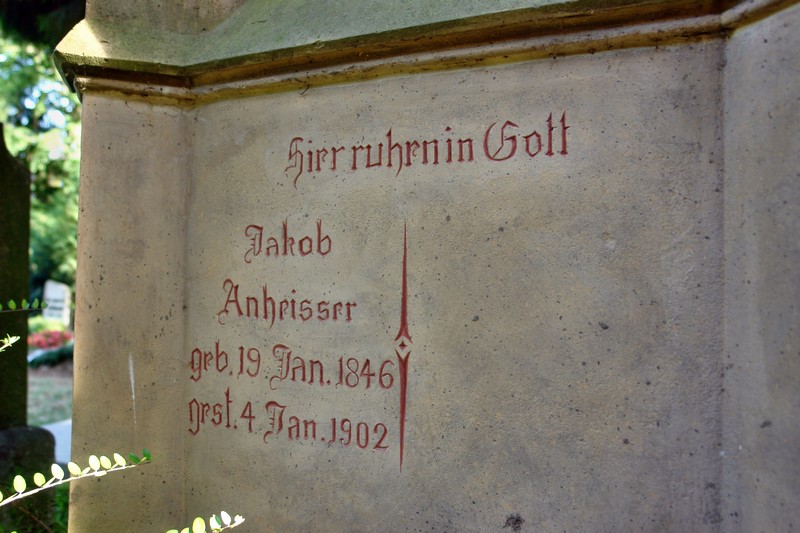 Hier ruhen in Gott
Jakob
Anheisser
geb. 19. Jan. 1846
gest. 4. Jan. 1902